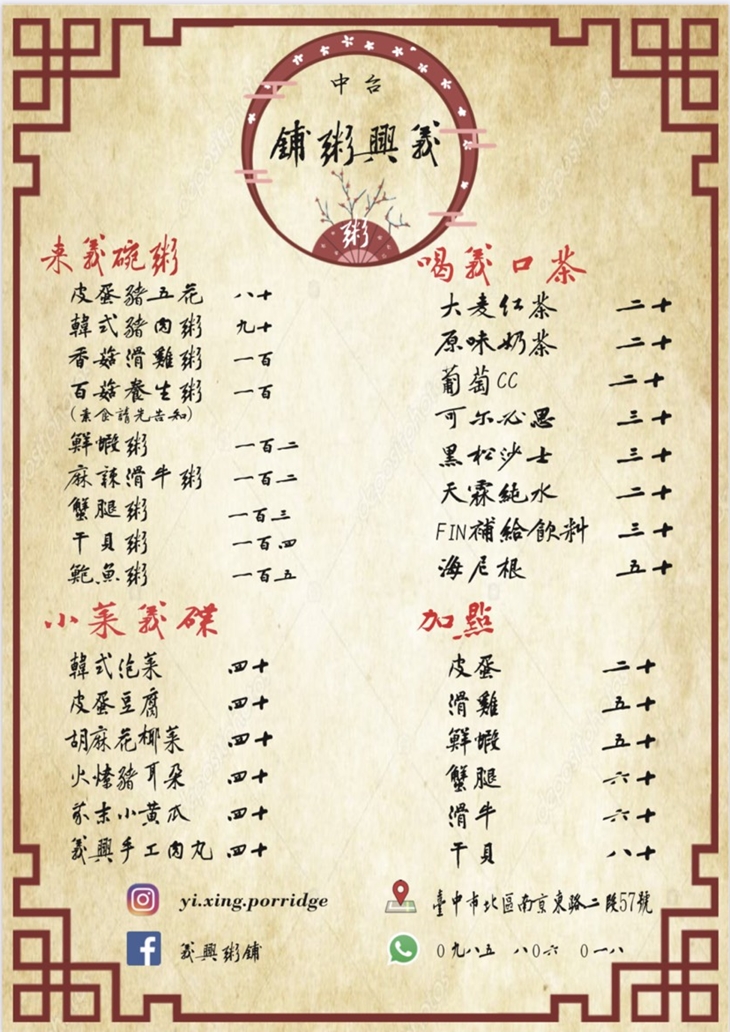 中台
義興粥舖
粥
來義碗粥
皮蛋豬五花 八十
韓式豬肉粥 九十
香菇滑雞粥 一百
百菇養生粥 一百
(素食請先告知)
鮮蝦粥 一百二
麻辣滑牛粥 一百二
蟹腿粥 一百三
干貝粥 一百四
鮑魚粥 一百五
小菜義碟
韓式泡菜 四十
皮蛋豆腐 四十
胡麻花椰菜 四十
火燎豬耳朵 四十
蒜末小黃瓜 四十
義興手工肉丸 四十
喝義口茶
大麦红茶 二十
原味奶茶 二十
葡萄CC 二十
可尔必思 三十
黑松沙士 三十
天霖純水 二十
FIN補給飲料 三十
海尼根 五十
加點
皮蛋 二十
滑雞 五十
鮮蝦 五十
蟹腿 六十
滑牛 六十
干貝 八十
yi.xing.porridge
義興粥舖
臺中市北區南京東路二段57號
0九八五 八0六 0一八